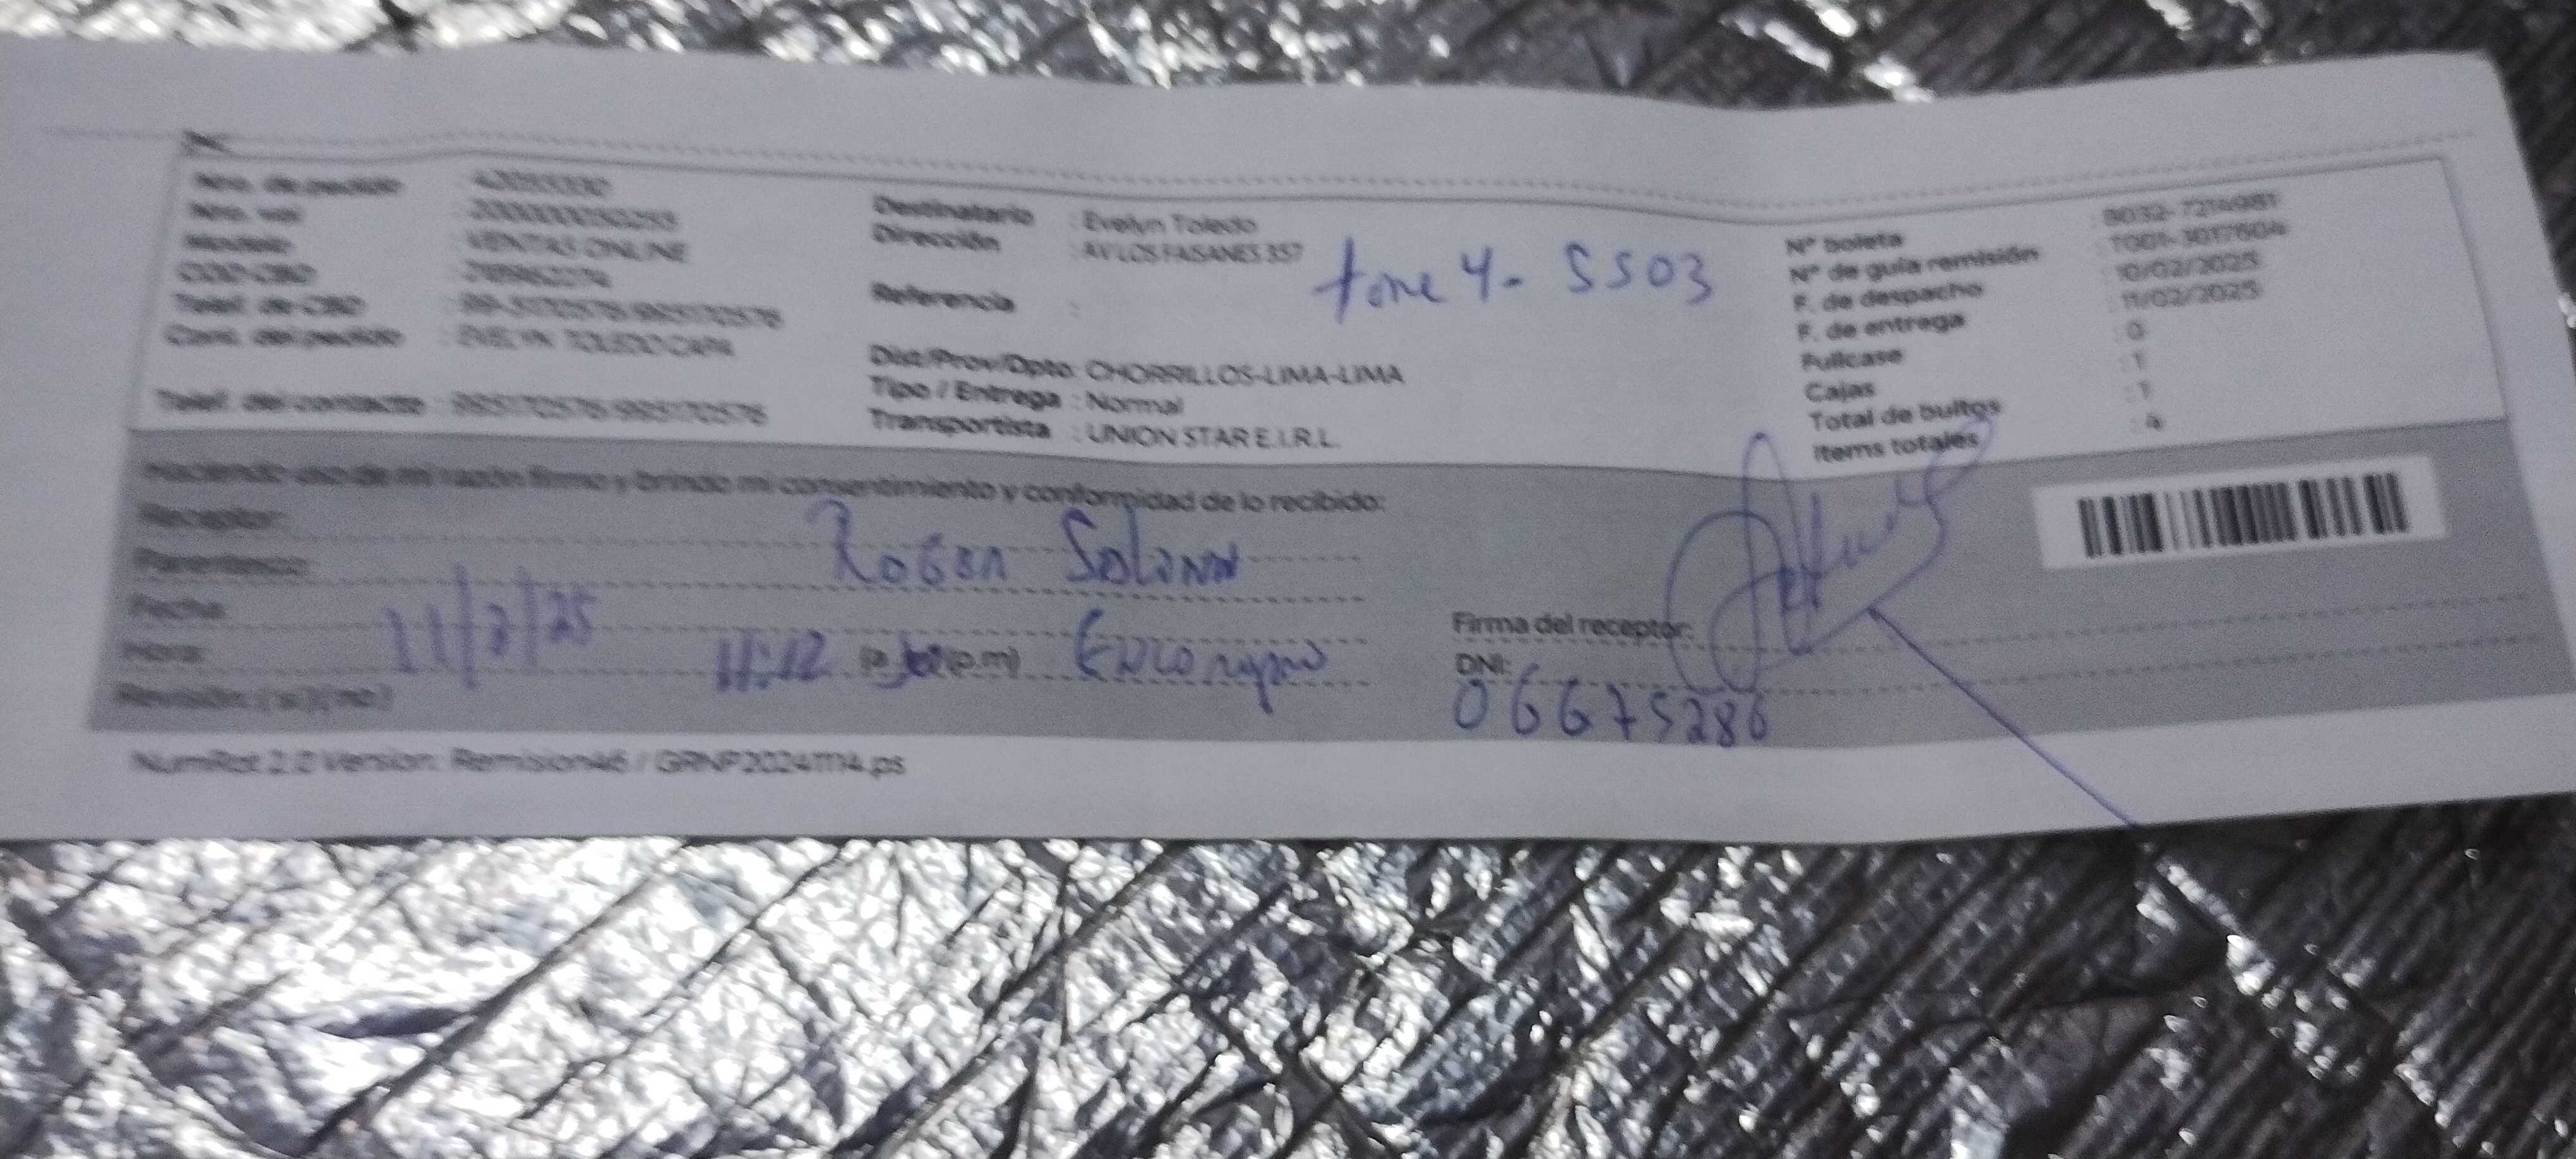 Nro. de pedido
Nro. vol
Modelo : VENTAS ONLINE
COD-CBD
Telef. de CBD
Cont. del pedido : EVELYN TOLEDO CAPA
Telef. del contacto : 985170576/985170576
Destinatario : Evelyn Toledo
Dirección : AV LOS FAISANES 357
Referencia :
torre 4 - 5503
Dist/Prov/Dpto: CHORRILLOS-LIMA-LIMA
Tipo / Entrega : Normal
Transportista : UNION STAR E.I.R.L.
N° boleta
N° de guía remisión : T001-3017604
F. de despacho : 10/02/2025
F. de entrega : 11/02/2025
Fullcase : 0
Cajas : 1
Total de bultos : 1
Items totales : 4
Haciendo uso de mi razón firmo y brindo mi consentimiento y conformidad de lo recibido:
Receptor: Roger Solano
Parentesco:
Fecha: 11/2/25
Hora: 11:12 (p.m)
Revisión: (si) (no)
Firma del receptor:
DNI: 06675286
NumRot 2.0 Version: Remision46 / GRNP20241114.ps